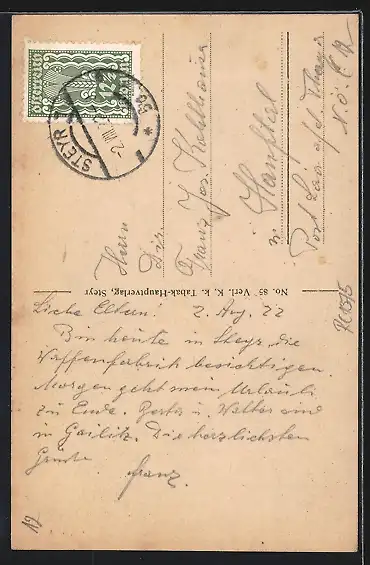 Österreich
12½
STEYR
2. VIII.
Herrn
Dir.
Franz Jos. Kohlhauser
Stampfltal
Post
N.Ö.
No. 85 Verl. K. k. Tabak-Hauptverlag, Steyr
Liebe Eltern! 2. Aug. 22
Bin heute in Steyr, die
Waffenfabrik besichtigen.
Morgen geht mein Urlaub
zu Ende. Berta u. Walter sind
in Gailitz. Die herzlichsten
Grüße
Franz.
19